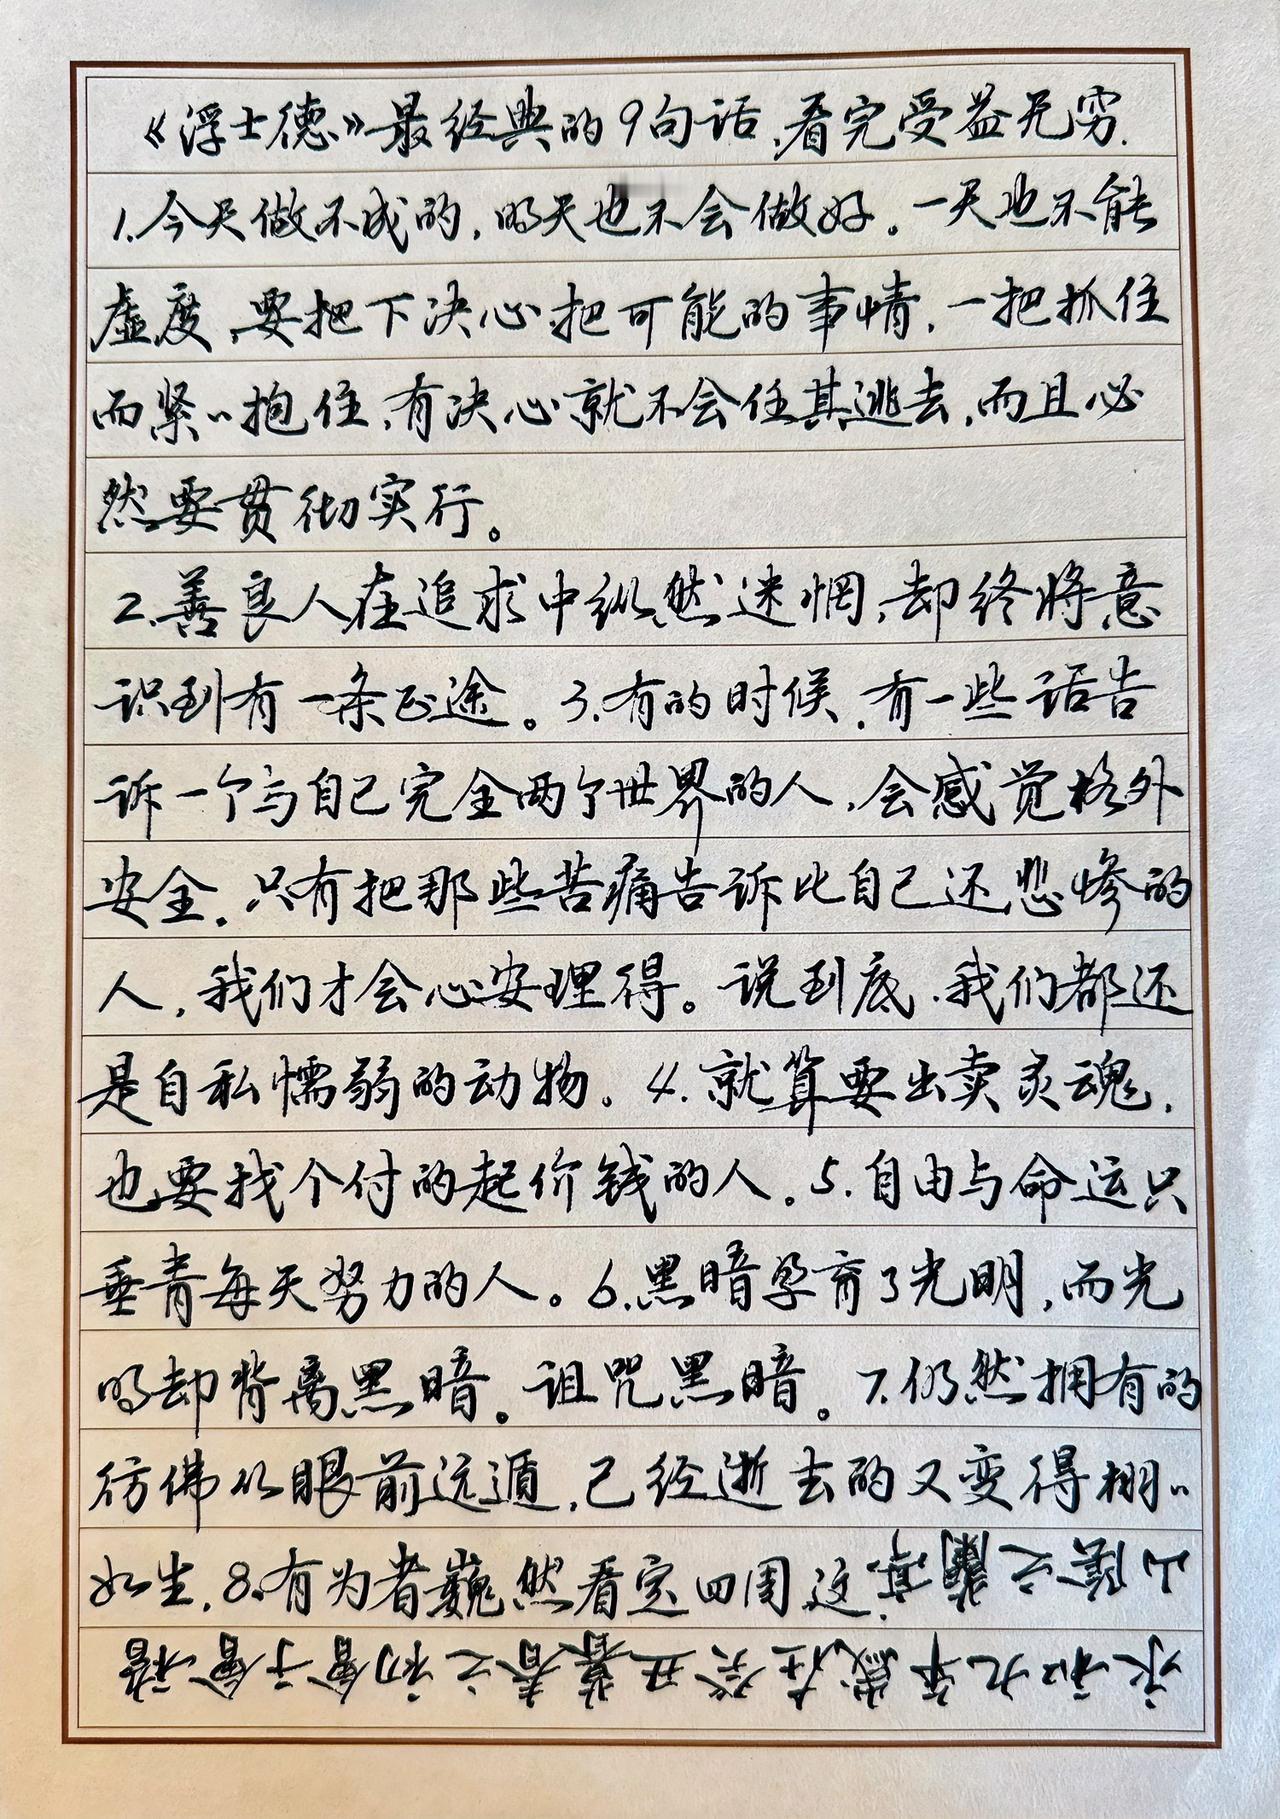 《浮士德》最经典的9句话,看完受益无穷.
1.今天做不成的,明天也不会做好。一天也不能
虚度,要把下决心把可能的事情,一把抓住
而紧〃抱住,有决心就不会任其逃去,而且必
然要贯彻实行。
2.善良人在追求中纵然迷惘,却终将意
识到有一条正途。3.有的时候,有一些话告
诉一个与自己完全两个世界的人,会感觉格外
安全.只有把那些苦痛告诉比自己还悲惨的
人,我们才会心安理得。说到底,我们都还
是自私懦弱的动物。4.就算要出卖灵魂,
也要找个付的起价钱的人。5.自由与命运只
垂青每天努力的人。6.黑暗孕育了光明,而光
明却背离黑暗。诅咒黑暗。7.仍然拥有的
彷佛从眼前远遁,已经逝去的又变得栩〃
如生.8.有为者巍然看定四周这
永和九年歲在癸丑暮春之初會于會稽
山陰之蘭亭